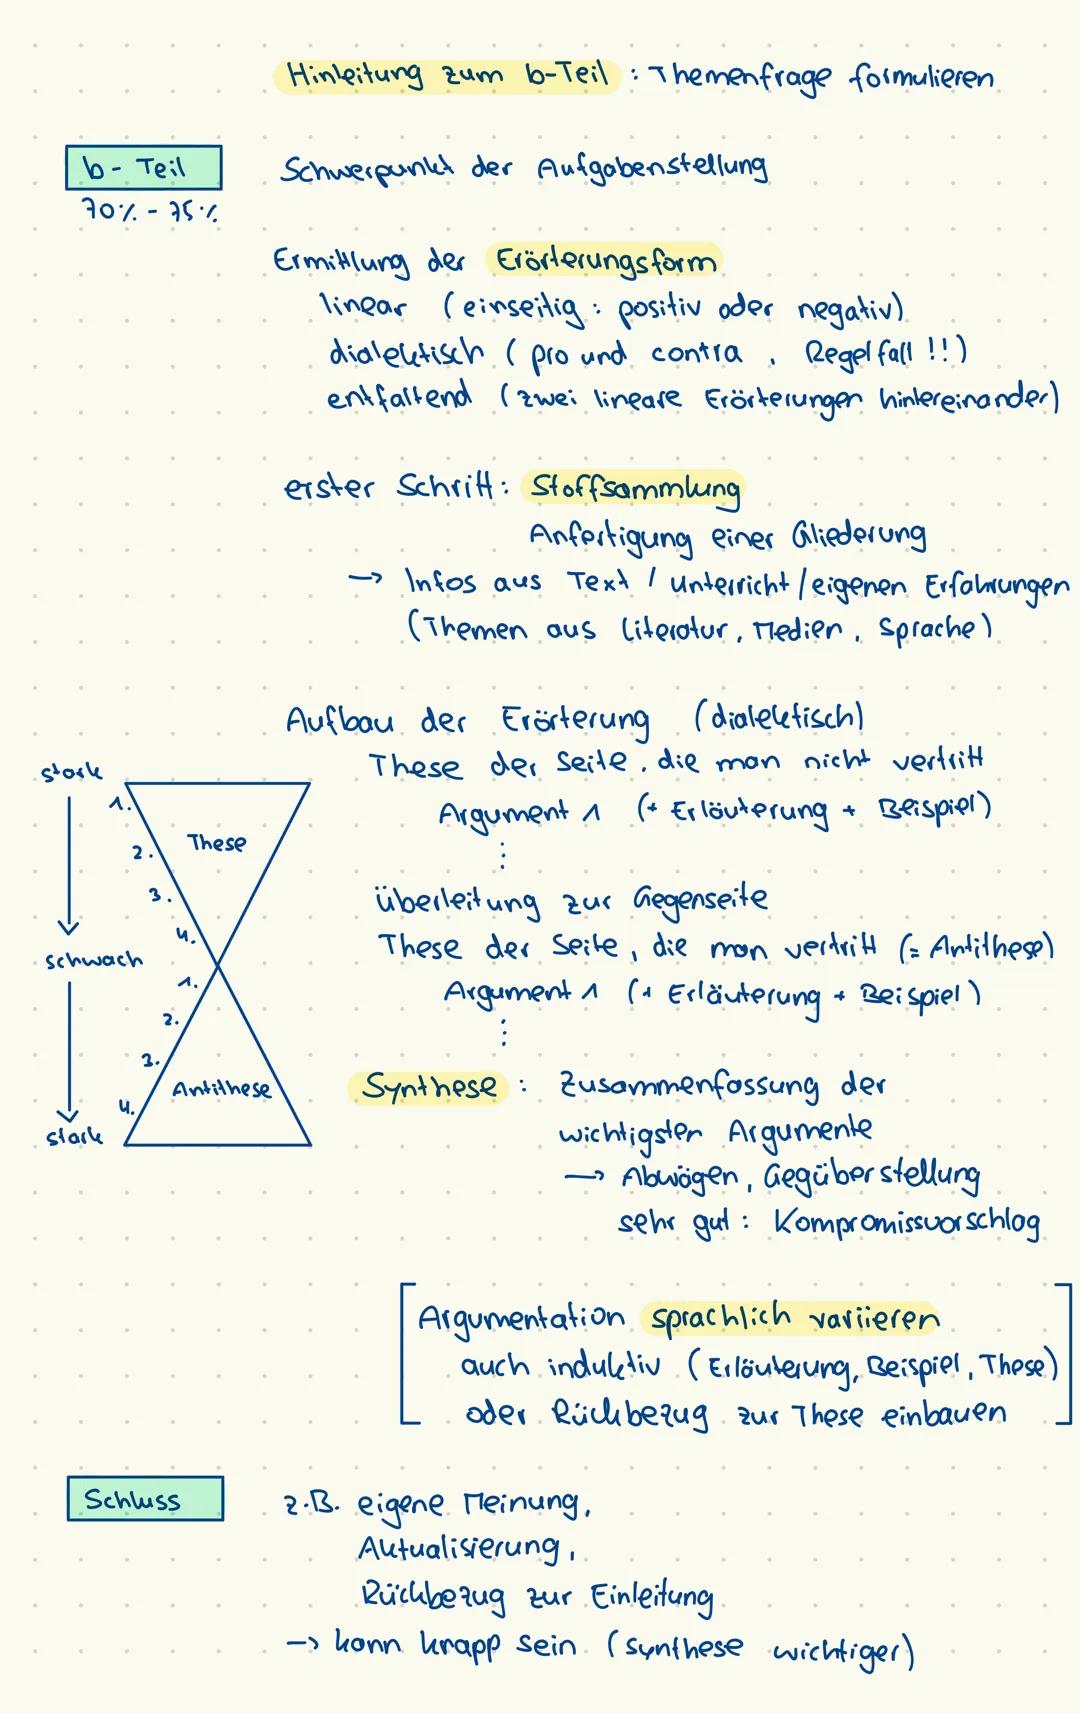 Hinleitung zum b-Teil : Themenfrage formulieren
b- Teil
Schwerpunkt der Aufgabenstellung
70% - 75%
Ermittlung der Erörterungsform
linear (einseitig: positiv oder negativ)
dialektisch (pro und contra, Regelfall !!)
entfaltend (zwei lineare Erörterungen hintereinander)
erster Schritt: Stoffsammlung
Anfertigung einer Gliederung
→ Infos aus Text / Unterricht / eigenen Erfahrungen
(Themen aus Literatur, Medien, Sprache)
Aufbau der Erörterung (dialektisch)
These der Seite, die man nicht vertritt
Argument 1 (+ Erläuterung + Beispiel)
⋮
Überleitung zur Gegenseite
These der Seite, die man vertritt (= Antithese)
Argument 1 (+ Erläuterung + Beispiel)
⋮
stark
1.
2.
These
3.
4.
schwach
1.
2.
3.
Antithese
4.
stark
Synthese : Zusammenfassung der
wichtigsten Argumente
→ Abwägen, Gegüberstellung
sehr gut: Kompromissvorschlag
Argumentation sprachlich variieren
auch induktiv (Erläuterung, Beispiel, These)
oder Rückbezug zur These einbauen
Schluss
z.B. eigene Meinung,
Aktualisierung,
Rückbezug zur Einleitung
→ kann knapp sein (Synthese wichtiger)